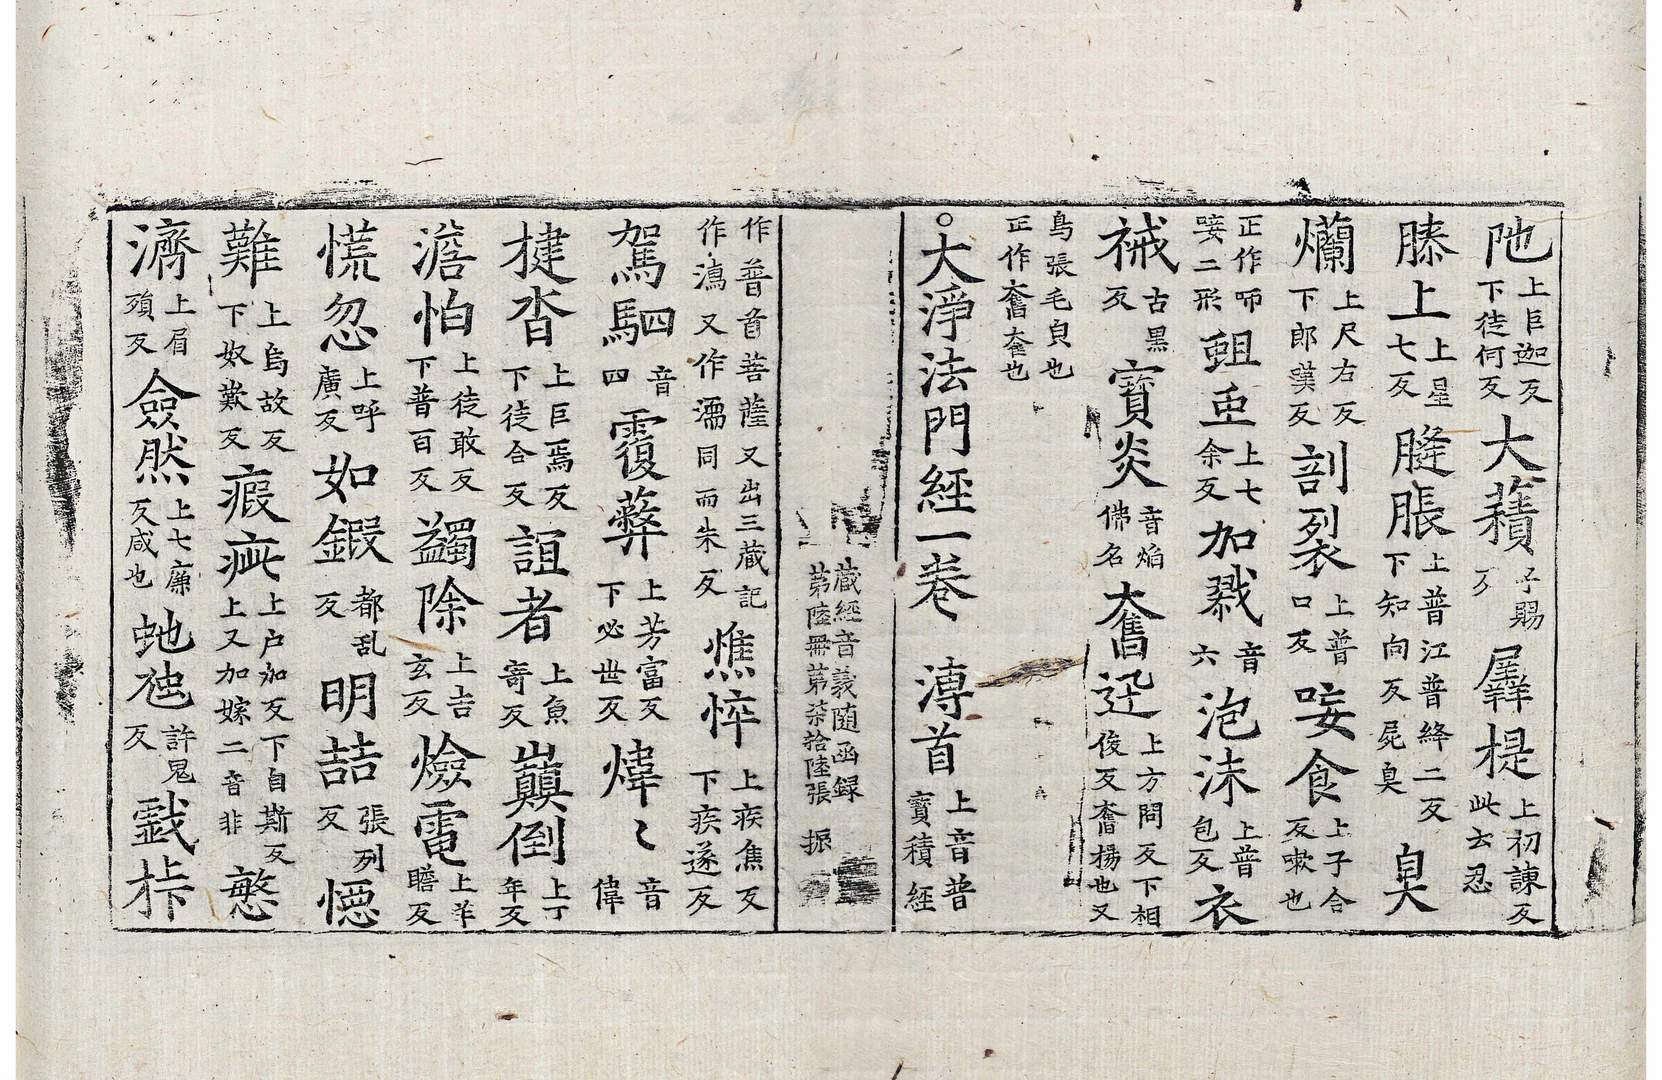 阤上巨迦反下徒何反大𧂐子賜反羼提上初諫反此云忍
膝上上星七反膖脹上普江普絳二反下知向反屍臭臭
爛上尺右反下郎漢反剖裂上普口反唼食上子合反嗽也
正作咂唼二形蛆䖝上七余反加戮音六泡沫上普包反衣
裓古黑反寶炎音焰佛名大奮迅上方問反下相俊反奮揚也又
鳥張毛皃也正作奮奞也
○大淨法門經一卷 溥首上音普寶積經
藏經音義隨函録
第陸冊第柒拾陸張 振
作普首菩薩又出三藏記作㶆又作濡同而朱反憔悴上疾焦反下疾遂反
駕駟音四覆蔽上芳富反下必世反煒〻音偉
揵沓上巨焉反下徒合反誼者上魚寄反巔倒上丁年反
澹怕上徒敢反下普百反蠲除上吉玄反爓電上羊贍反
慌忽上呼廣反如鍛都乱反明喆張列反憁
難上烏故反下奴歎反瘕疵上户加反下自斯反上又加嫁二音非慜
濟上眉殞反僉然上七廉反咸也虵虺許鬼反戲㭓